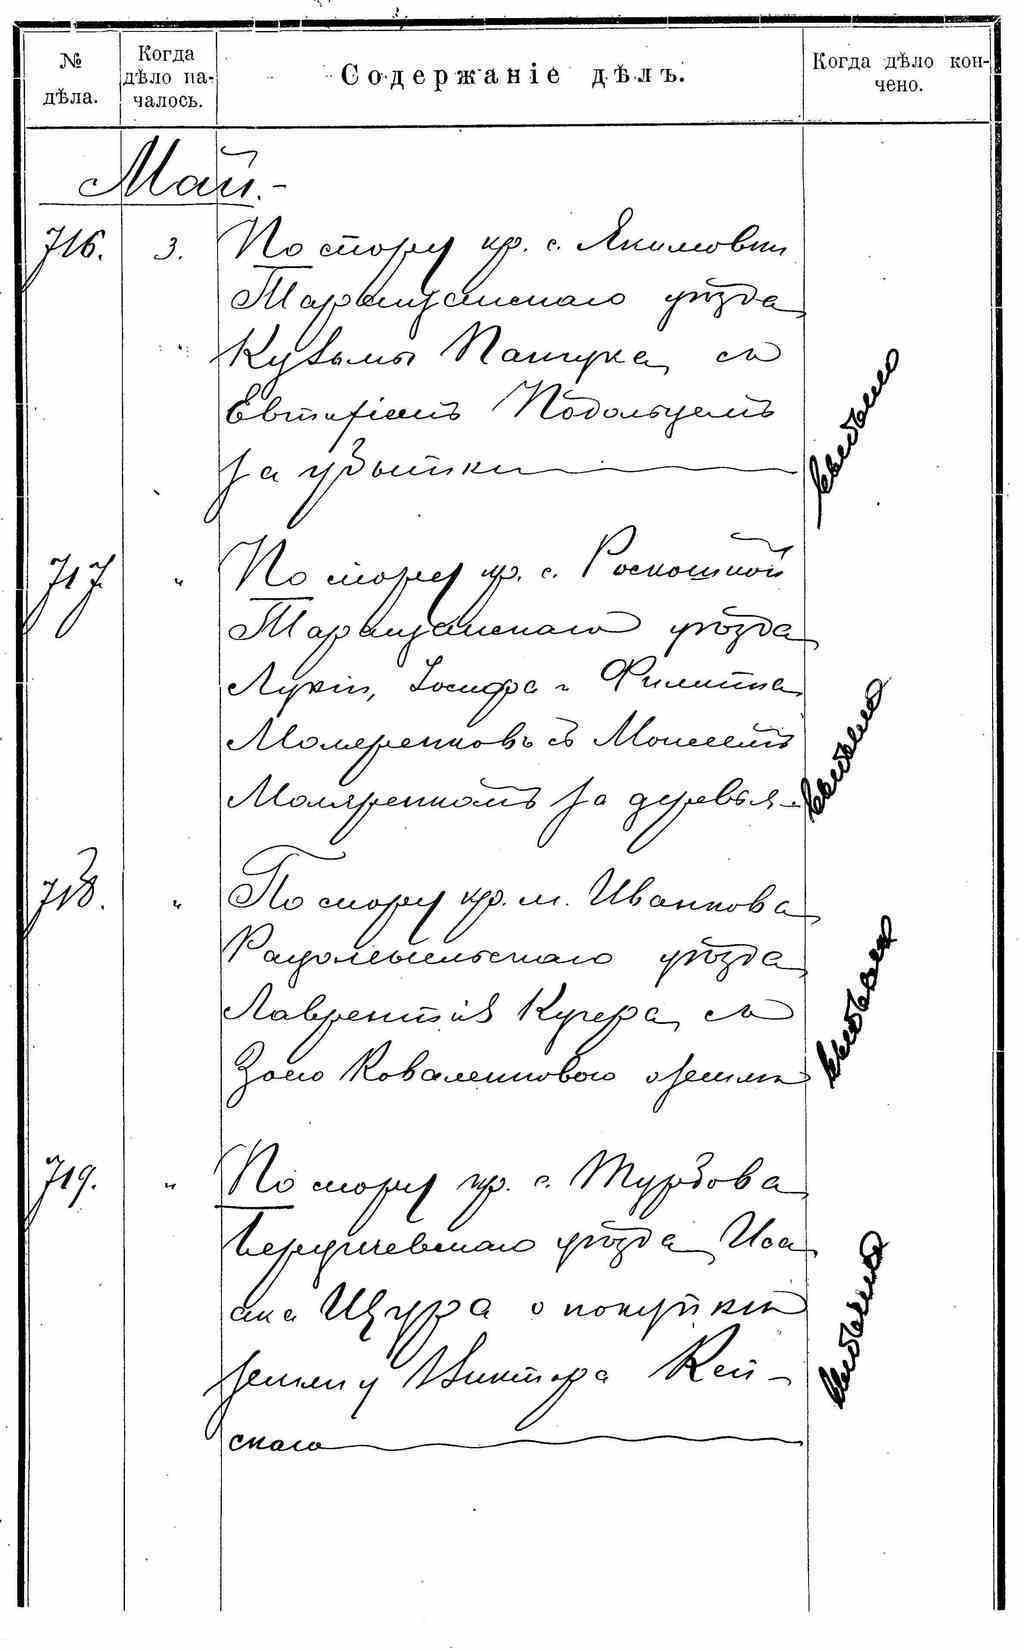 № дѣла.
Когда дѣло на-
чалось.
Содержаніе дѣлъ.
Когда дѣло кон-
чено.
Май.-
716. 3. По спору кр. с. Якимовки
Таращанскаго уѣзда
Кузьмы Панчука со
Евтифіемъ Подольцемъ
за убытки
717. " По спору кр. с. Роскошной
Таращанскаго уѣзда
Луки, Іосифа и Филиппа
Моляренковъ съ Моисеемъ
Моляренкомъ за деревья
718. " По спору кр. м. Иванкова
Радомысльскаго уѣзда
Лаврентія Кучера со
Зосю Коваленковою о земли
719. " По спору кр. с. Турбова
Бердичевскаго уѣзда Иса
ака Щура о покупки
земли у Виктора Кей-
скаго